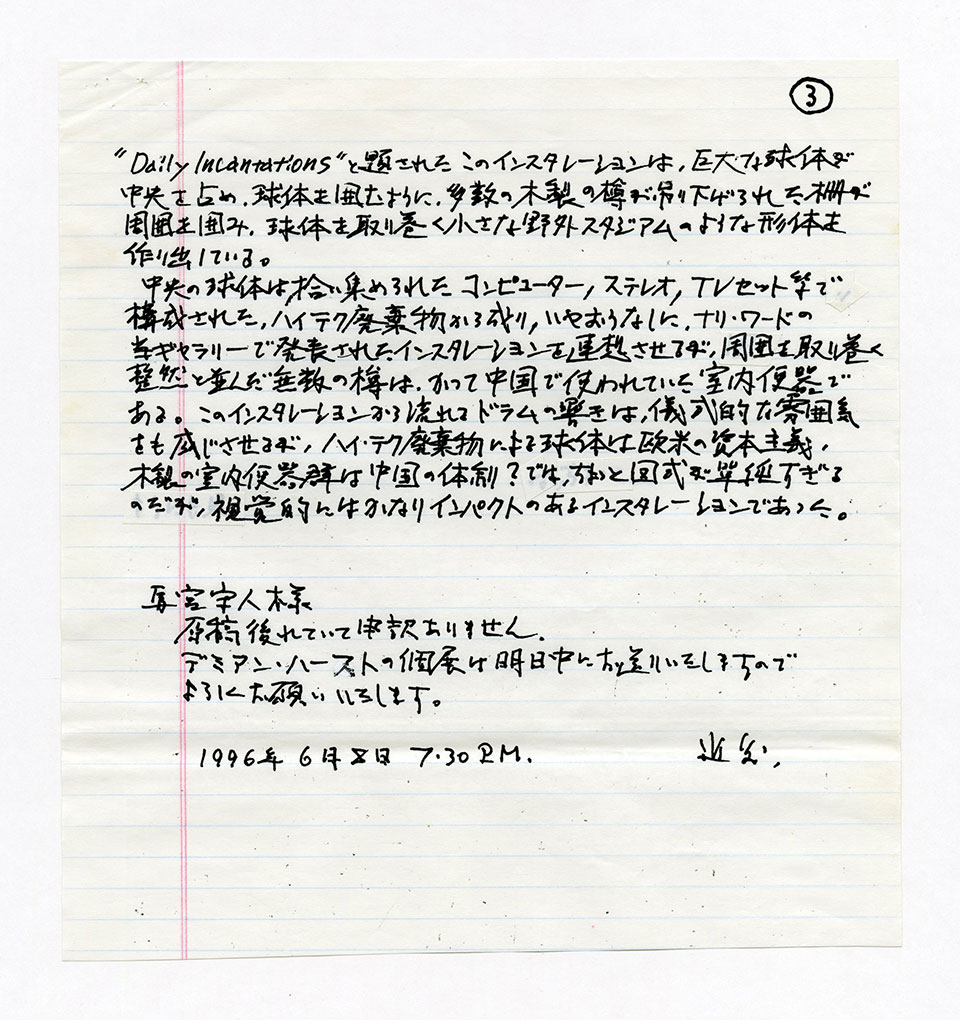 3
"Daily Incantations"と題されたこのインスタレーションは、巨大な球体が
中央を占め、球体を囲むように、多数の木製の樽が吊り下げられた柵が
周囲を囲み、球体を取り巻く小さな野外スタジアムのような形体を
作り出している。
中央の球体は拾い集められたコンピューター, ステレオ, TVセット等で
構成された、ハイテク廃棄物から成り、いやおうなしに、ナリ・ワードの
当ギャラリーで発表されたインスタレーションを連想させるが、周囲を取り巻く
整然と並んだ無数の樽は、かつて中国で使われていた室内便器で
ある。このインスタレーションから流れるドラムの響きは、儀式的な雰囲気
をも感じさせるが、ハイ・テク廃棄物による球体は欧米の資本主義、
木製の室内便器群は中国の体制?では、ちょっと図式が単純すぎる
のだが、視覚的にはかなりインパクトのあるインスタレーションであった。
宮宇人様
原稿後れていて申訳ありません.
デミアン・ハーストの個展は明日中にお送りいたしますので
よろしくお願いいたします。
1996年 6月8日 7.30 P.M.